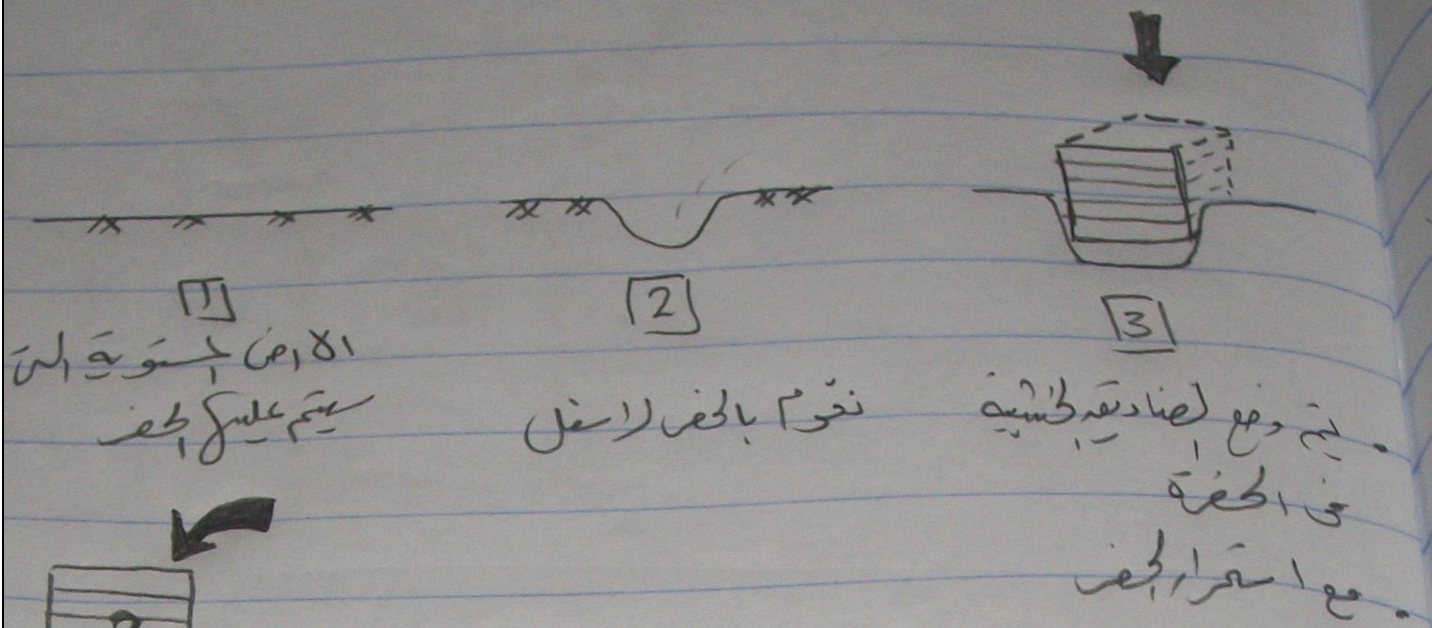 1
الارض المستوية التى
سيتم عليها الحفر
2
نقوم بالحفر لاسفل
3
. يتم وضع الصناديق الخشبية
فى الحفرة
. مع استمرار الحفر